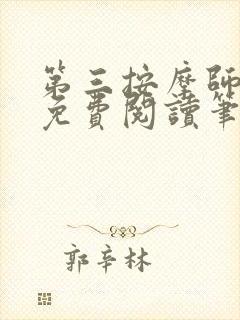 第三按摩師
免費閱讀筆
郭辛林